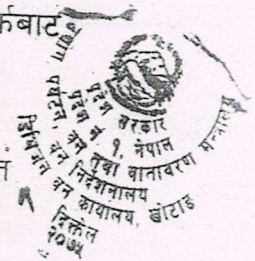 र्कबाट
प्रदेश सरकार
प्रदेश नं. १, नेपाल
पर्यटन, वन तथा वातावरण मन्त्रालय
वन निर्देशनालय
डिभिजन वन कार्यालय, खोटाङ
दिक्तेल
२०७५